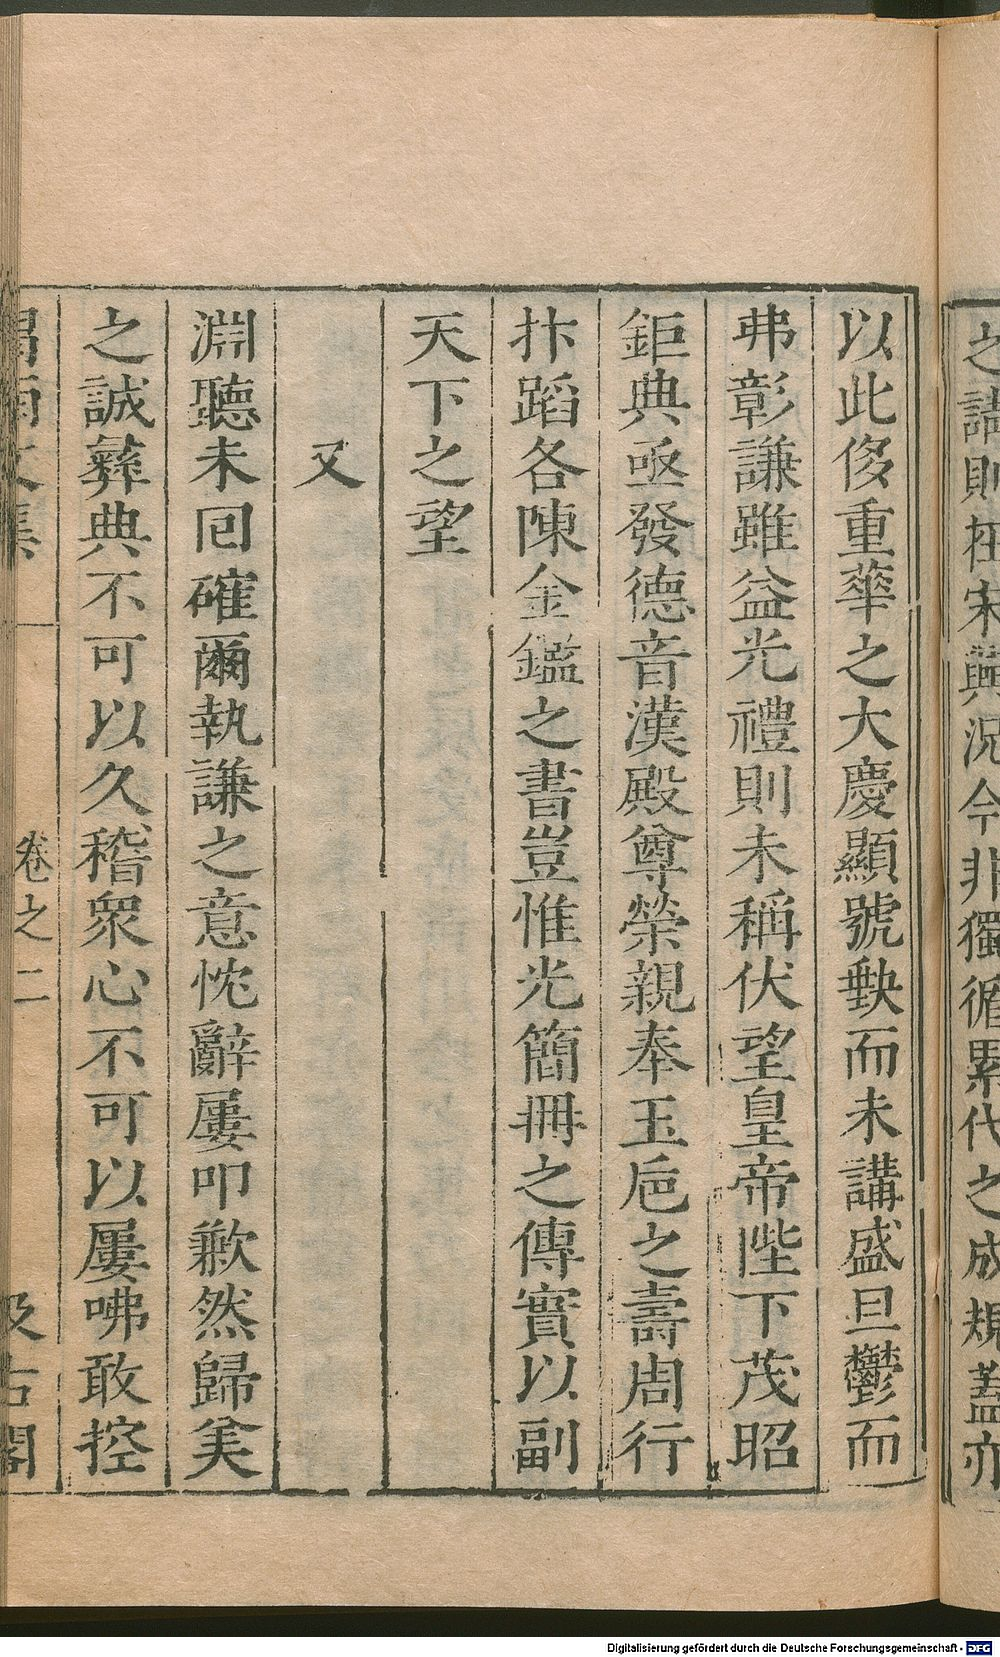 之講則在宋與況今非獨循累代之成規蓋亦
以此侈重華之大慶顯號缺而未講盛旦鬱而
弗彰謙雖益光禮則未稱伏望皇帝陛下茂昭
鉅典亟發德音漢殿尊榮親奉玉巵之壽周行
抃蹈各陳金鑑之書豈惟光簡冊之傳實以副
天下之望
又
淵聽未囘確爾執謙之意忱辭屢叩歉然歸美
之誠彛典不可以久稽衆心不可以屢咈敢控
文集
卷之二
汲古閣
Digitalisierung gefördert durch die Deutsche Forschungsgemeinschaft - DFG